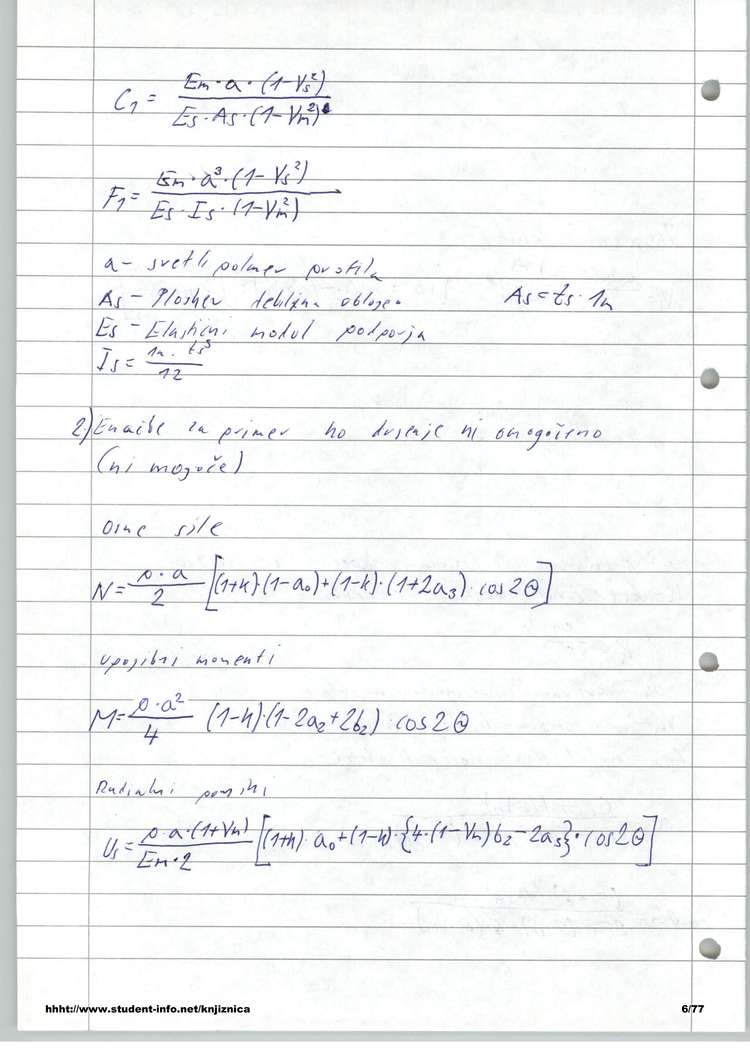 C₁ = Em · a · (1-Vs²) / Es · As · (1-Vm²)
F₁ = Em · a³ · (1-Vs²) / Es · Is · (1-Vm²)
a - svetli polmer profila
As - debelina obloge As = ts · 1m
Es - Elastični modul podporja
Is = 1m · ts³ / 12
2.) Enačbe za primer ko drsenje ni omogočeno
(ni mogoče)
Osne sile
N = p · a / 2 [(1+k)·(1-a₀)+(1-k)·(1+2a₂)·cos2Θ]
Upogibni momenti
M = p · a² / 4 (1-k)·(1-2a₂+2b₂)·cos2Θ
Radialni pomiki
Us = p · a · (1+Vm) / Em · 2 [(1+k)·a₀+(1-k)·{4·(1-Vm)b₂-2a₂}·cos2Θ]
hhht://www.student-info.net/knjiznica 6/77